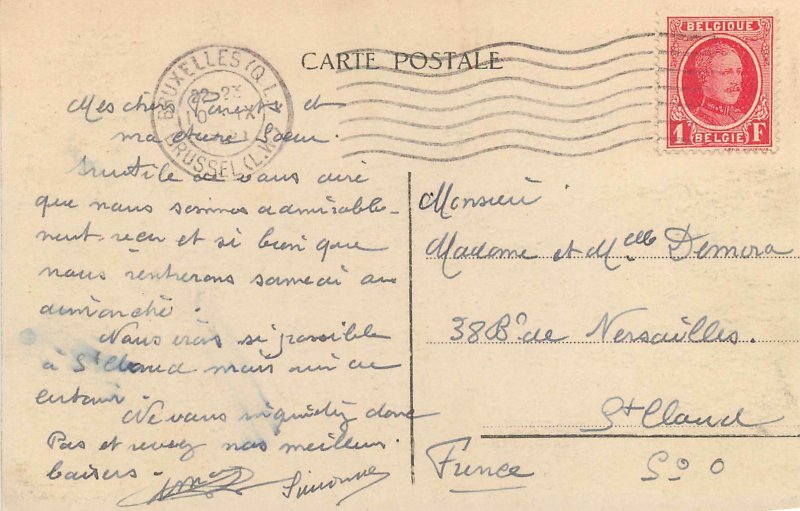 CARTE POSTALE
BRUXELLES (Q.L.)
22-23
10 IX
BRUSSEL (L.W.)
BELGIQUE
1 F
BELGIË
Mes chers parents et
ma chère soeur.
Inutile de vous dire
que nous sommes admirable-
ment reçu et si bien que
nous rentrerons samedi ou
dimanche.
Nous irons si possible
à St Cloud mais rien de
certain.
Ne vous inquiétez donc
Pas et recevez nos meilleurs
baisers.
Simonne
Monsieur
Madame et Melle Demora
38 Bd de Versailles.
St Cloud
S o O
France